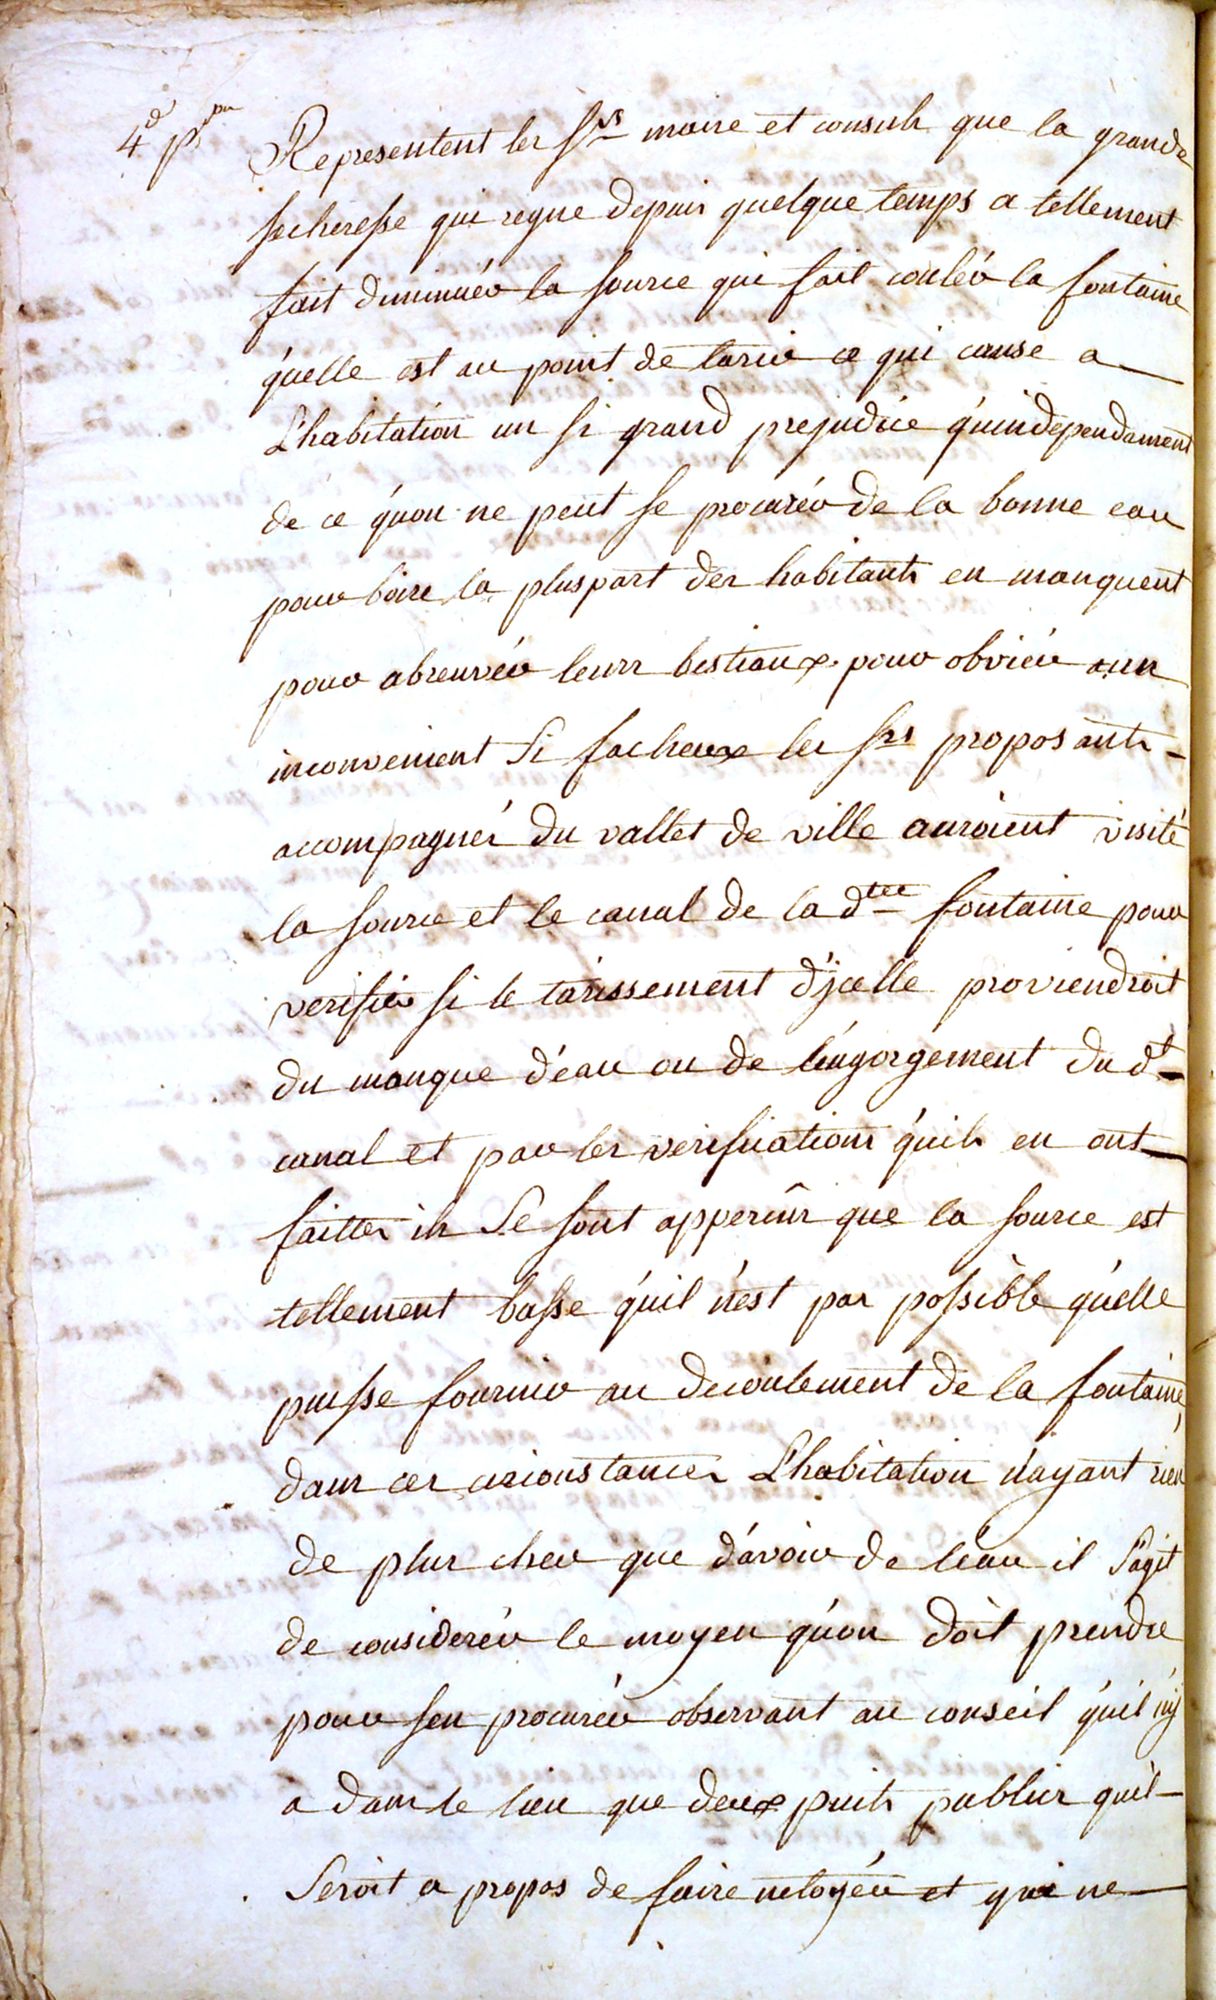 4.d ppon
Representent les Srs maire et consuls que la grande
secheresse qui regne depuis quelque temps a tellement
fait diminuér la source qui fait couler la fontaine
qu'elle est au point de tarir ce qui cause a
L'habitation un si grand prejudice qu'independament
de ce qu'on ne peut se procurér de la bonne eau
pour boire la pluspart des habitants en manquent
pour abreuvér leurs bestiaux. pour obviér aun
inconvenient Si facheux les srs proposants
accompagnés du vallet de ville auroient visité
la source et le canal de la dtte fontaine pour
verifier si le tarissement d'jcelle proviendroit
du manque d'éau ou de l'éngorgement du dt
canal et par les verifications qu'ils en ont
faittes ils Se sont apperçûs que la source est
tellement basse qu'il n'est pas possible qu'elle
puisse fournir au decoulement de la fontaine,
dans ces circonstances L'habitation n'ayant rien
de plus cher que d'avoir de l'eau il S'agit
de considerér le moyen qu'on doit prendre
pour sen procurér observant au conseil qu'il n'y
a dans le lieu que deux puits publics quil
Seroit a propos de faire netoyér et qui ne